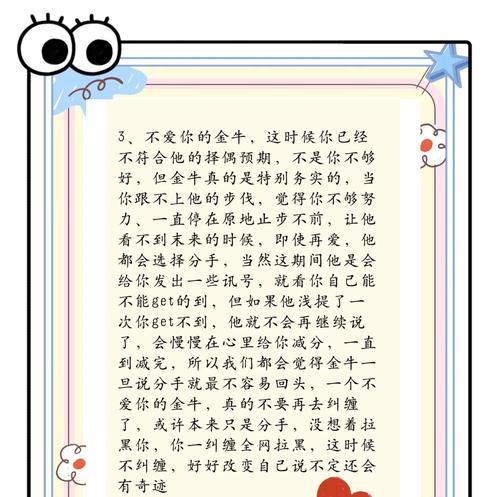 3、不爱你的金牛，这时候你已经
不符合他的择偶预期，不是你不够
好，但金牛真的是特别务实的，当
你跟不上他的步伐，觉得你不够努
力、一直停在原地止步不前，让他
看不到未来的时候，即使再爱，他
都会选择分手，当然这期间他是会
给你发出一些讯号，就看你自己能
不能get的到，但如果他浅提了一
次你get不到，他就不会再继续说
了，会慢慢在心里给你减分，一直
到减完，所以我们都会觉得金牛一
旦说分手就最不容易回头，一个不
爱你的金牛，真的不要再去纠缠
了，或许本来只是分手，没想着拉
黑你，你一纠缠全网拉黑，这时候
不纠缠，好好改变自己说不定还会
有奇迹